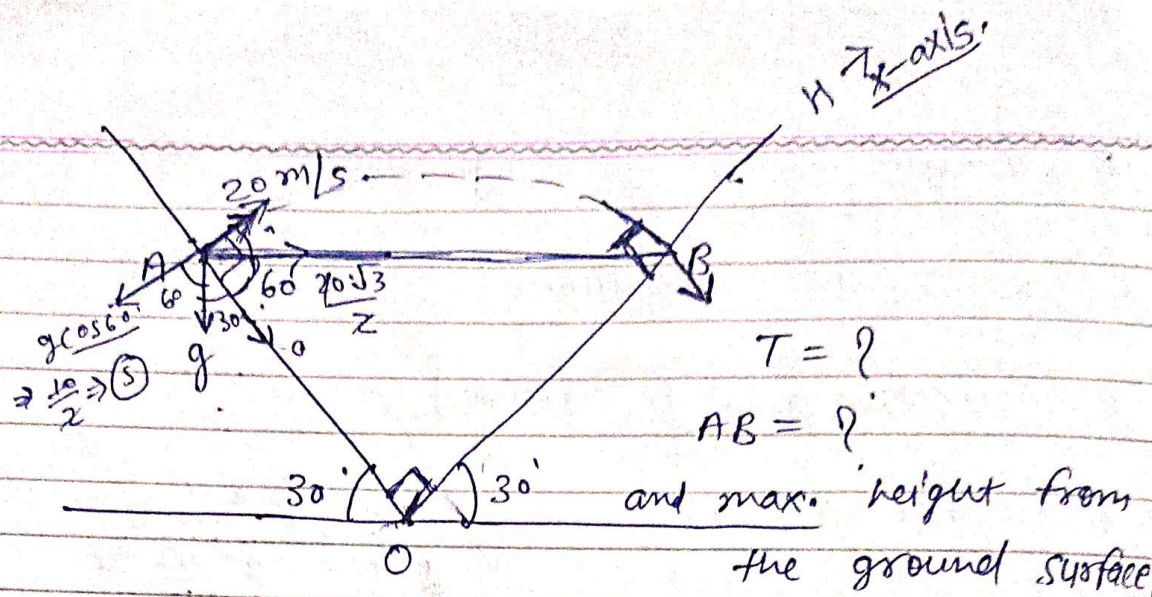 H → x-axis.
20 m/s
A
B
60°
60° 20√3/2
gcos60°
30°
g
⇒ 10/2 ⇒ 5
T = ?
AB = ?
30° 30° and max. height from
O the ground surface